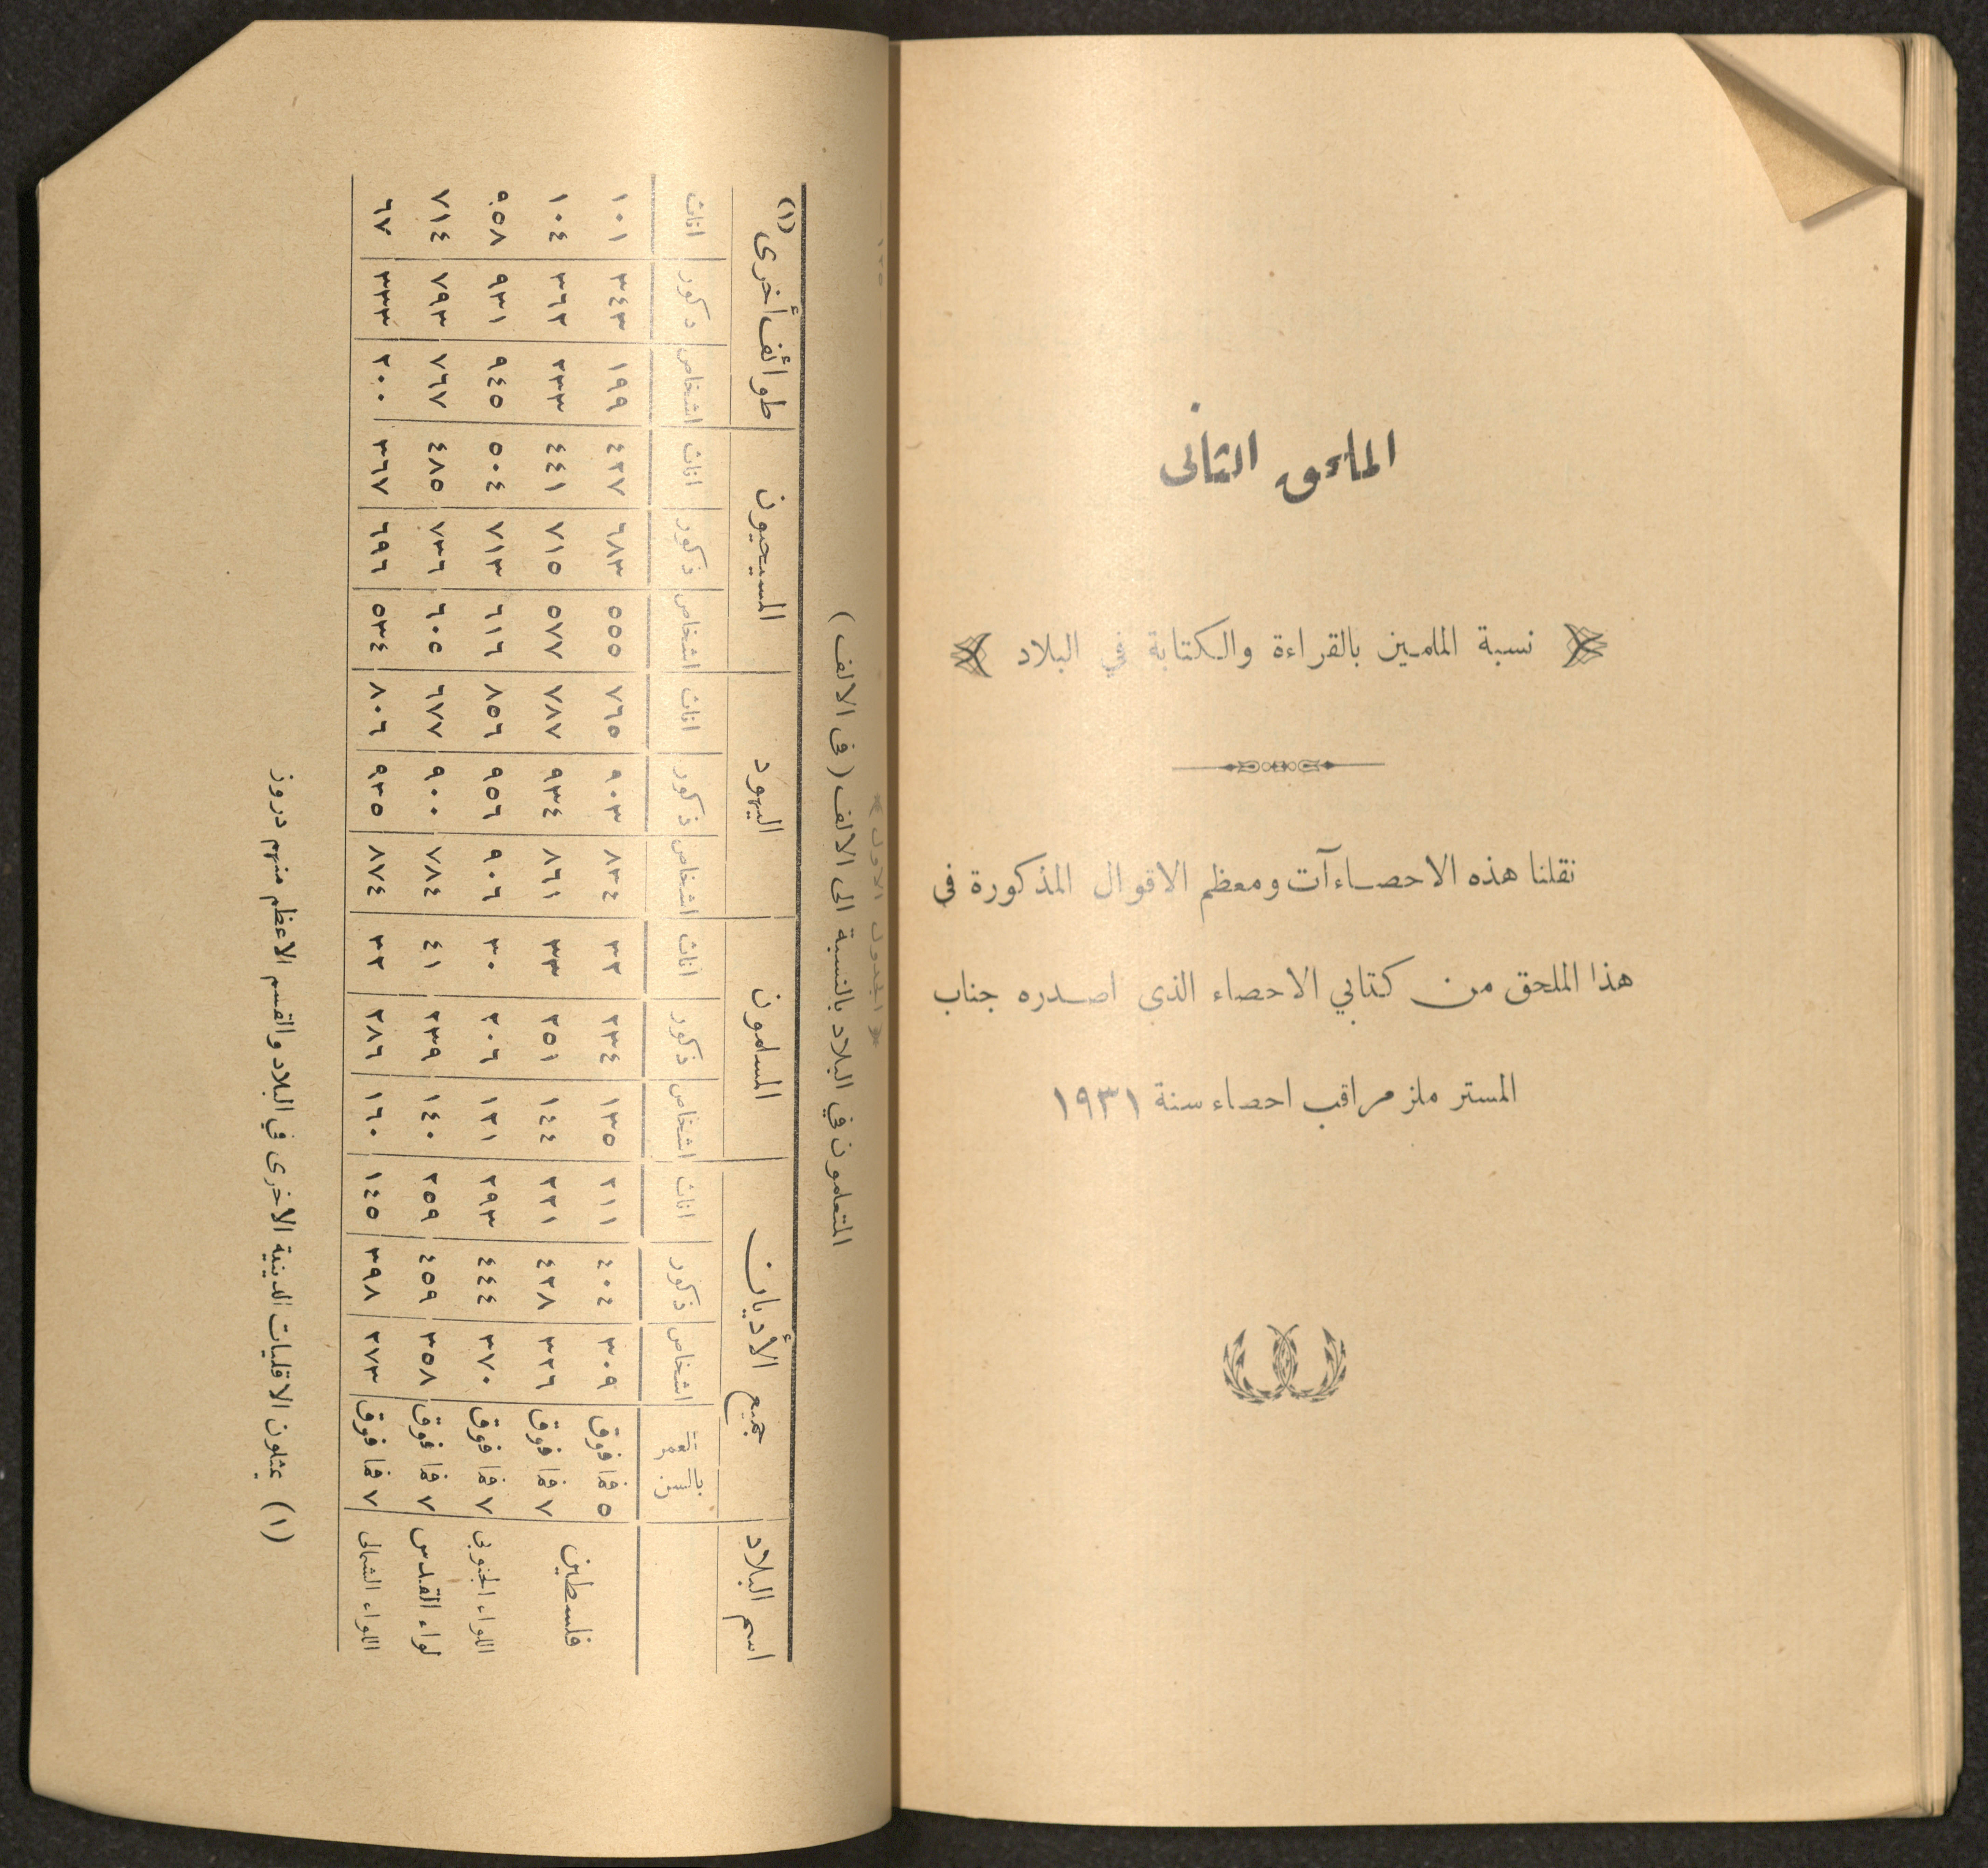 الملحق الثاني
نسبة الملمين بالقراءة والكتابة في البلاد
نقلنا هذه الاحصاءآت ومعظم الاقوال المذكورة في
هذا الملحق من كتابي الاحصاء الذي اصدره جناب
المستر ملز مراقب احصاء سنة ١٩٣١
المتعلمون في البلاد بالنسبة الى الالف ( في الالف )
اسم البلاد جميع الأديان المسلمون اليهود المسيحيون طوائف أخرى (١)
اشخاص ذكور اناث اشخاص ذكور اناث اشخاص ذكور اناث اشخاص ذكور اناث اشخاص ذكور اناث
فلسطين ٥ فما فوق ٣٠٩ ٤٠٤ ٢١١ ١٣٥ ٢٣٤ ٣٢ ٨٣٤ ٩٠٣ ٧٦٥ ٥٥٥ ٦٨٣ ٤٢٧ ١٩٩ ٣٤٣ ١٠١
٧ فما فوق ٣٢٦ ٤٢٨ ٢٢١ ١٤٤ ٢٥١ ٣٣ ٨٦١ ٩٣٤ ٧٨٧ ٥٧٧ ٧١٥ ٤٤١ ٢٣٣ ٣٦٣ ١٠٤
اللواء الجنوبي ٧ فما فوق ٣٧٠ ٤٤٤ ٢٩٣ ١٢١ ٢٠٦ ٣٠ ٩٠٦ ٩٥٦ ٨٥٦ ٦١٦ ٧١٣ ٥٠٤ ٩٤٥ ٩٣١ ٩٥٨
لواء القدس ٧ فما فوق ٣٥٨ ٤٥٩ ٢٥٩ ١٤٠ ٢٣٩ ٤١ ٧٨٤ ٩٠٠ ٦٧٧ ٦٠٥ ٧٣٦ ٤٨٥ ٧٦٧ ٧٩٣ ٧١٤
اللواء الشمالى ٧ فما فوق ٢٧٣ ٣٩٨ ١٤٥ ١٦٠ ٢٨٦ ٣٣ ٨٧٤ ٩٣٥ ٨٠٦ ٥٣٤ ٦٩٦ ٣٦٧ ٢٠٠ ٣٣٣ ٦٧
(١) يمثلون الاقليات الدينية الاخرى في البلاد والقسم الاعظم منهم دروز